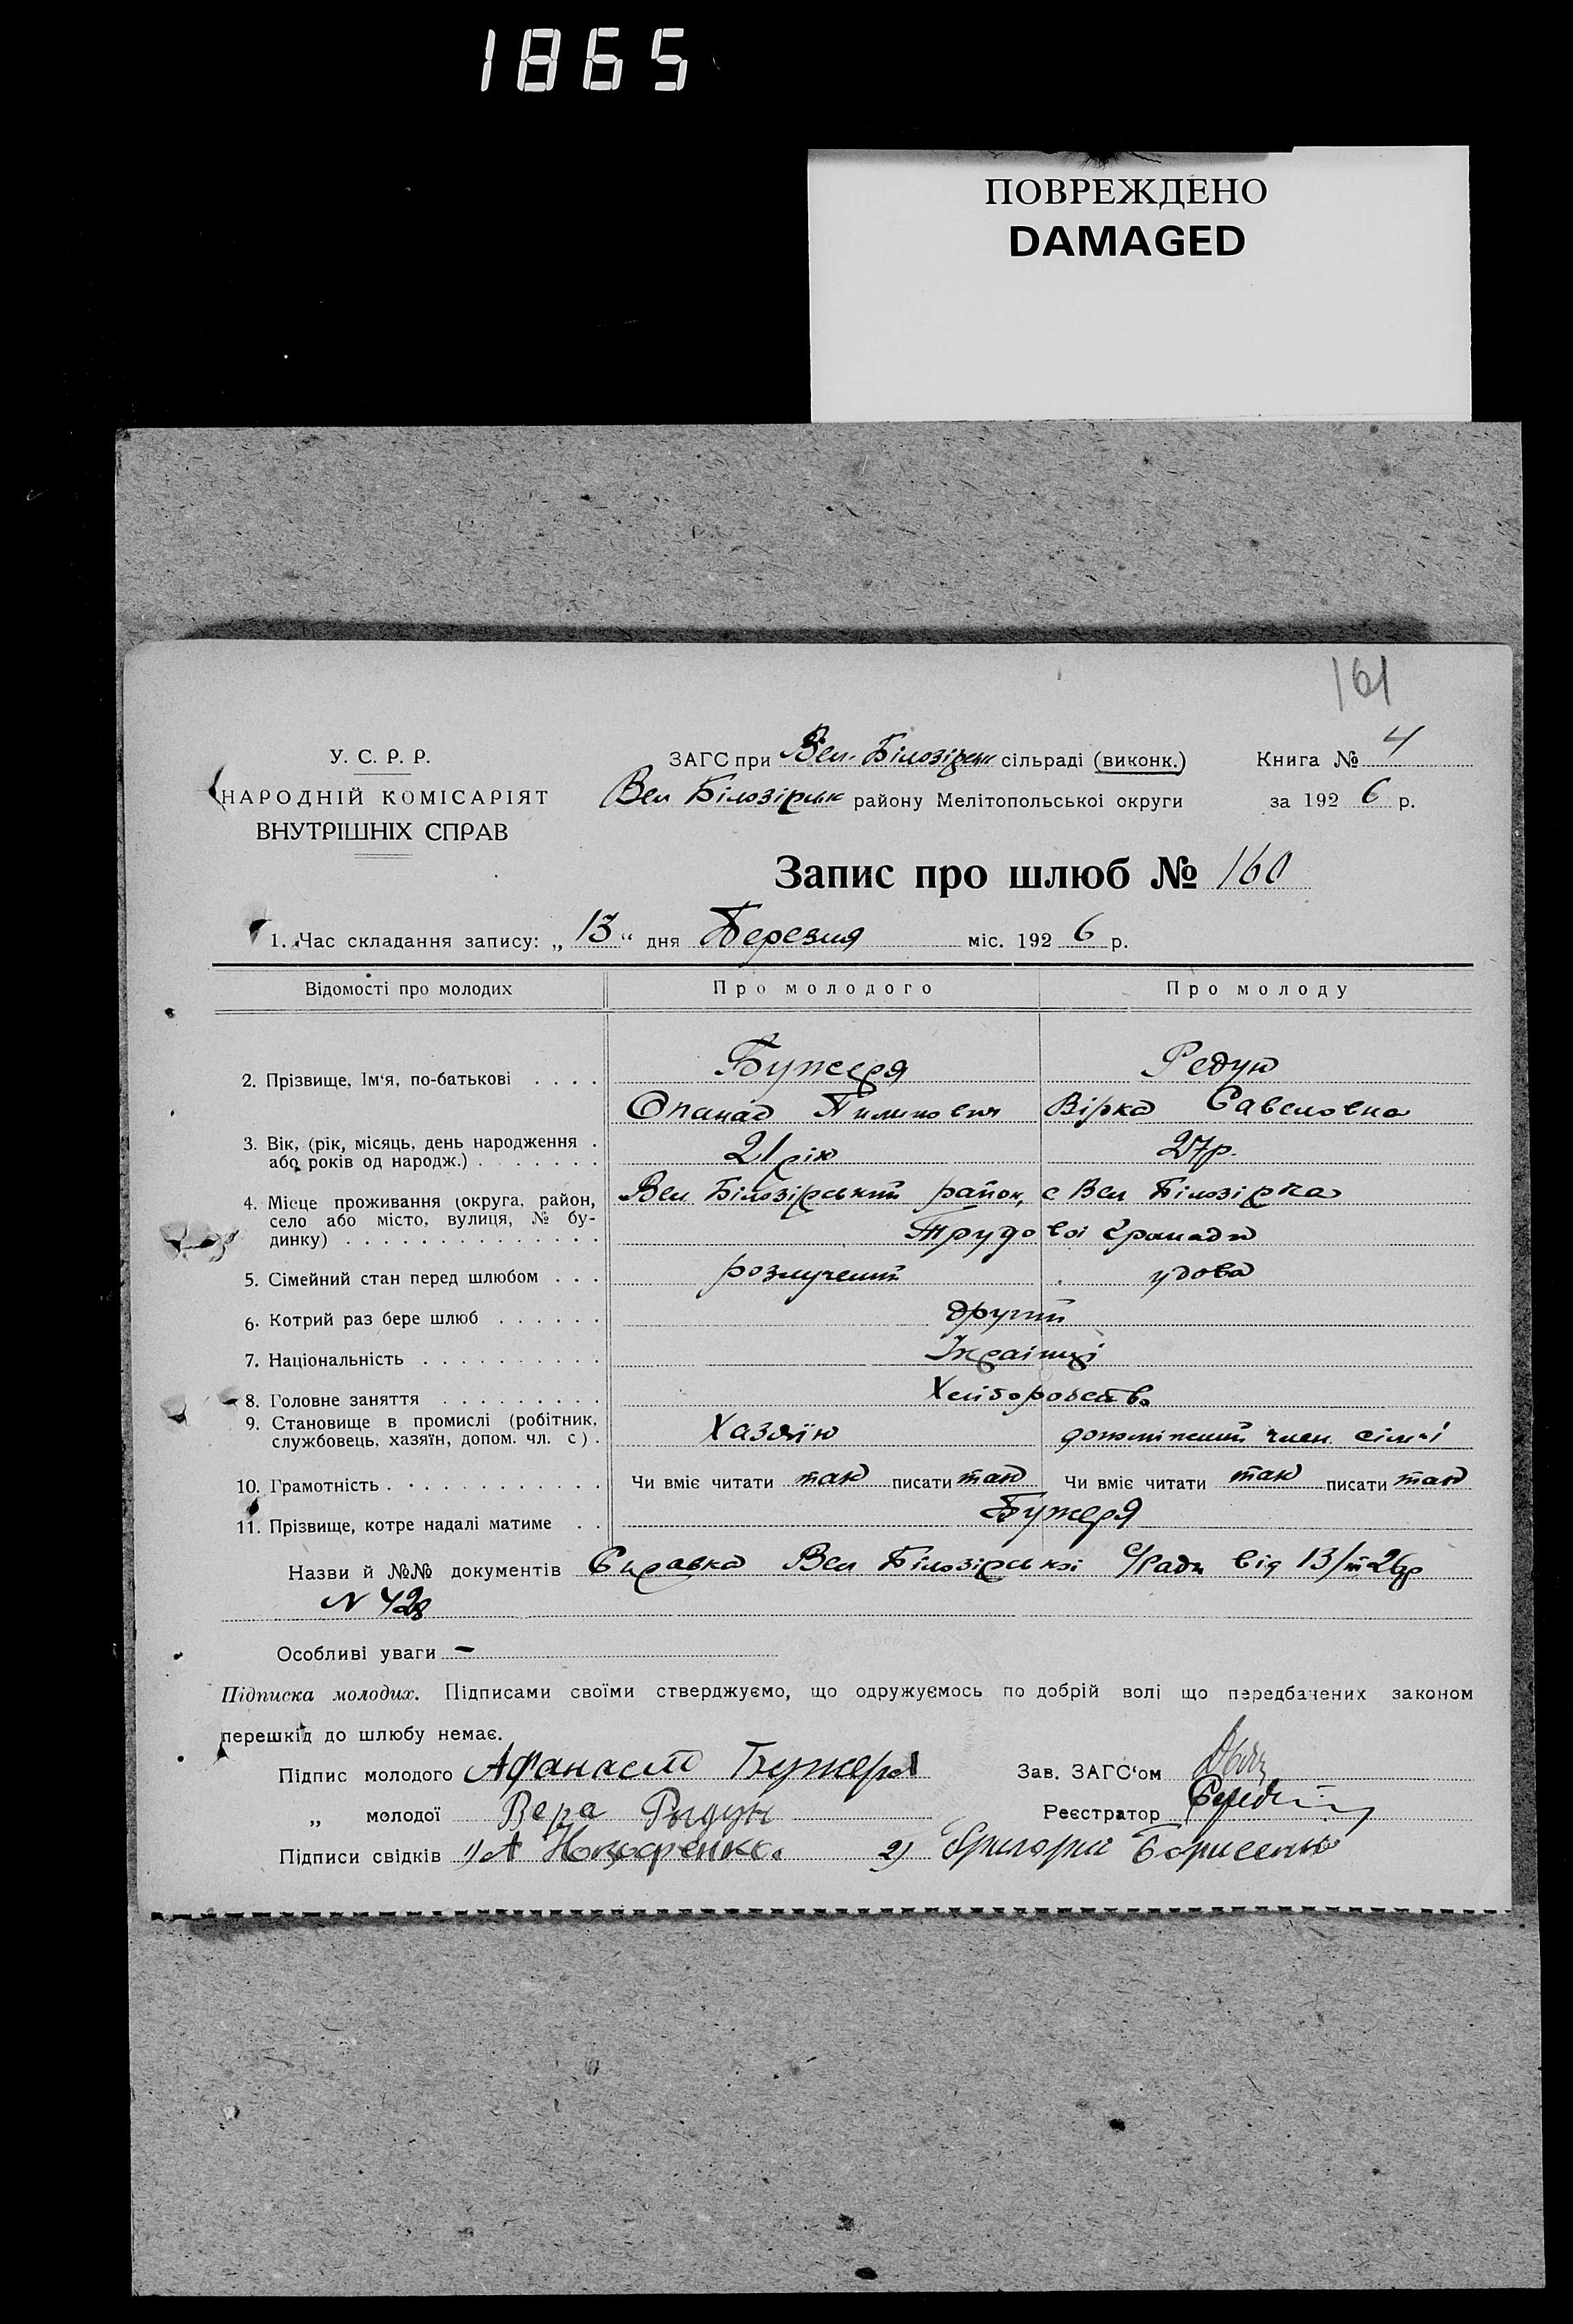 1865
ПОВРЕЖДЕНО
DAMAGED
161
У. С. Р. Р.
НАРОДНІЙ КОМІСАРІЯТ
ВНУТРІШНІХ СПРАВ
ЗАГС при Вел. Білозірськ сільраді (виконк.)
Вел Білозірськ району Мелітопольської округи
Книга № 4
за 1926 р.
Запис про шлюб № 160
1. Час складання запису: „13“ дня Березня міс. 1926 р.
Відомості про молодих Про молодого Про молоду
2. Прізвище, Ім‘я, по-батькові . . . . Бужеря Редун
Опанас Пилипович Вірка Савеловна
3. Вік, (рік, місяць, день народження .
або років од народж.) . . . . . . . 21 рік 27 р.
4. Місце проживання (округа, район,
село або місто, вулиця, № бу-
динку) . . . . . . . . . . . . . .
Вел Білозірський район, с Вел Білозірка
Трудової громади
5. Сімейний стан перед шлюбом . . . розлучений удова
6. Котрий раз бере шлюб . . . . . . другий
7. Національність . . . . . . . . . . Українці
8. Головне заняття . . . . . . . . . Хліборобство
9. Становище в промислі (робітник,
службовець, хазяїн, допом. чл. с.) . Хазяїн допоміжний член сім'ї
10. Грамотність . . . . . . . . . . . . Чи вміє читати так писати так Чи вміє читати так писати так
11. Прізвище, котре надалі матиме . . Бужеря
Назви й №№ документів Справка Вел Білозірської с/Ради від 13/III 26р
N 428
Особливі уваги —
Підписка молодих. Підписами своїми стверджуємо, що одружуємось по добрій волі що передбачених законом
перешкід до шлюбу немає.
Підпис молодого Афанасий Бужеря
Зав. ЗАГС‘ом
„ молодої Вера Рыдун
Реєстратор
Підписи свідків 1) А 2) Григорий Борисенко